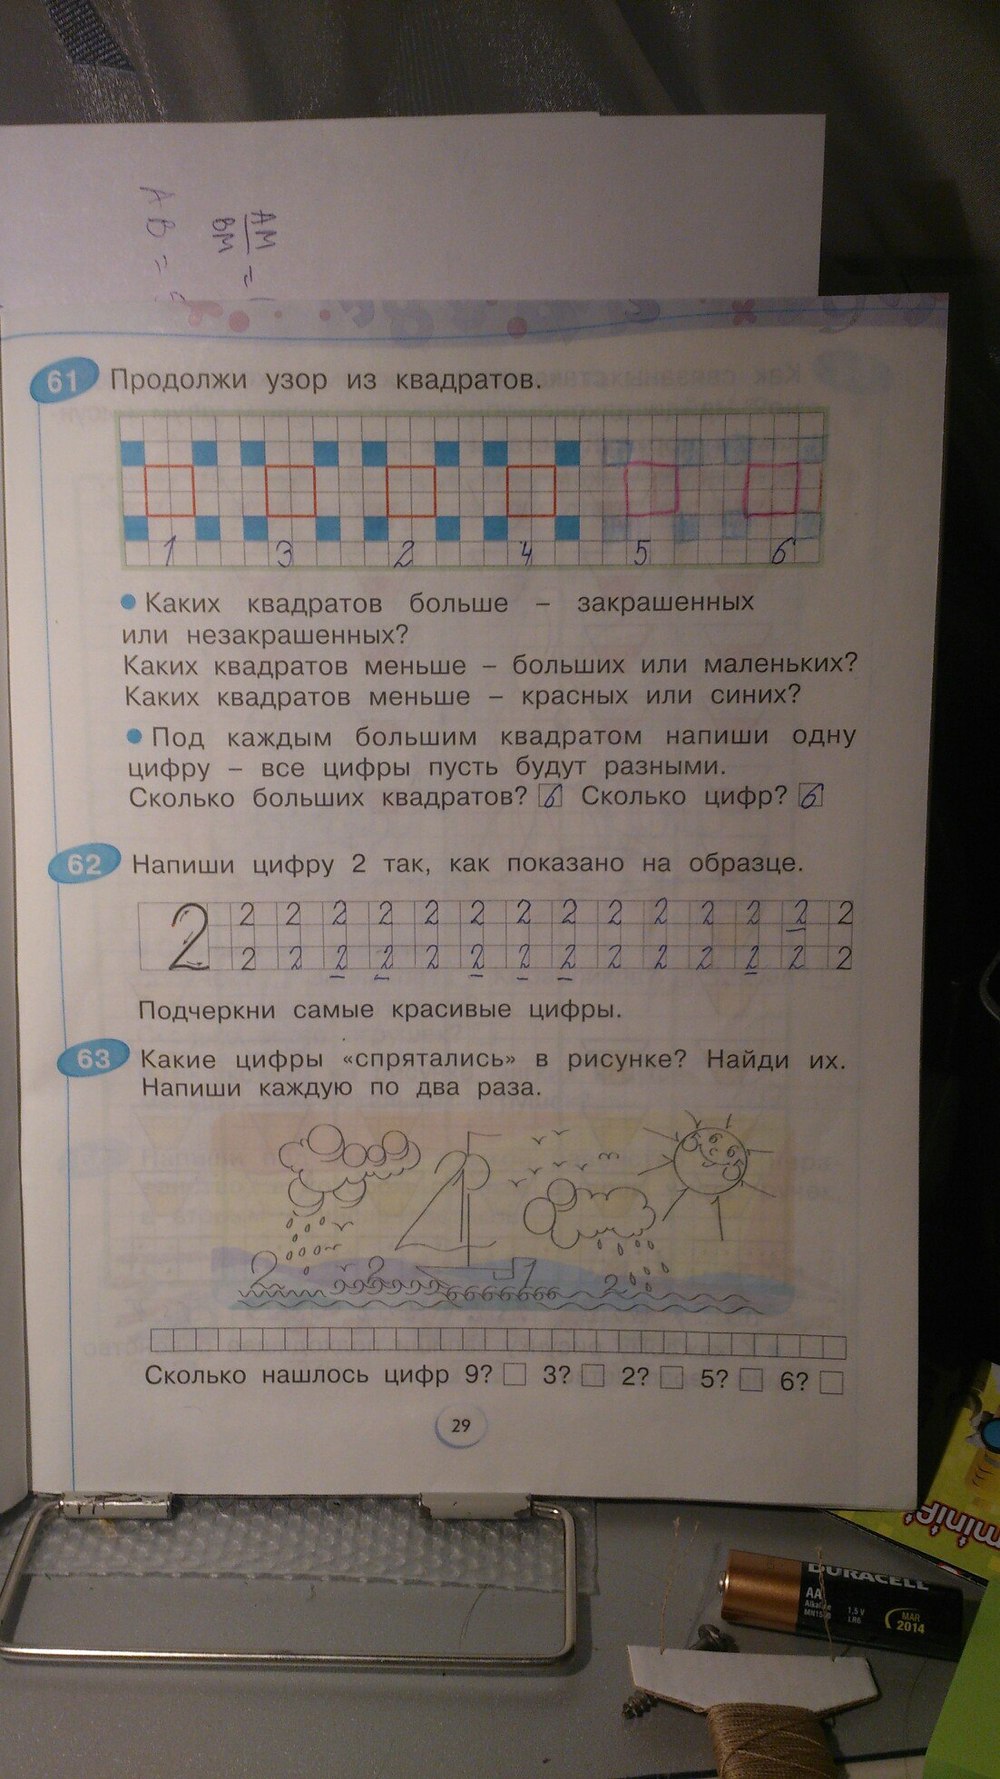 AM
BM
=
A B =
61 Продолжи узор из квадратов.
1 3 2 4 5 6
Каких квадратов больше – закрашенных
или незакрашенных?
Каких квадратов меньше – больших или маленьких?
Каких квадратов меньше – красных или синих?
Под каждым большим квадратом напиши одну
цифру – все цифры пусть будут разными.
Сколько больших квадратов? 6 Сколько цифр? 6
62 Напиши цифру 2 так, как показано на образце.
2 2 2 2 2 2 2 2 2 2 2 2 2 2 2
2 2 2 2 2 2 2 2 2 2 2 2 2 2
Подчеркни самые красивые цифры.
63 Какие цифры «спрятались» в рисунке? Найди их.
Напиши каждую по два раза.
Сколько нашлось цифр 9? 3? 2? 5? 6?
29
minifi
DURACELL
AA
Alkaline
MN1500
1,5 V
LR6
MAR
2014